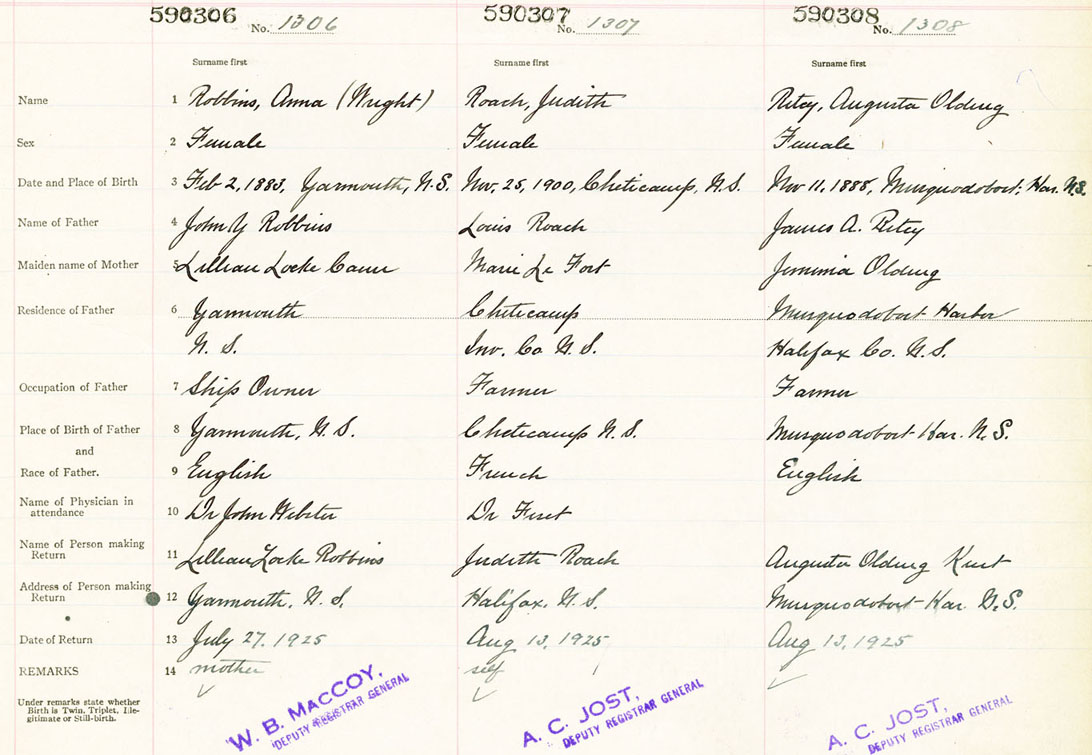 590306 590307 590308
No. 1306 No. 1307 No. 1308
Surname first Surname first Surname first
Name 1 Robbins, Anna (Wright) Roach, Judith Augusta Olding
Sex 2 Female Female Female
Date and Place of Birth 3 Feb 2, 1883, Yarmouth, N.S. Nov. 25, 1900, Cheticamp, N.S. Nov 11, 1888, Musquodoboit, Har. N.S.
Name of Father 4 John Y Robbins Louis Roach James A.
Maiden name of Mother 5 Lillian Locke Cann Marie Le Fort Jemima Olding
Residence of Father 6 Yarmouth Cheticamp Musquodoboit Harbor
N. S. Inv. Co N.S. Halifax Co. N.S.
Occupation of Father 7 Ship Owner Farmer Farmer
Place of Birth of Father 8 Yarmouth, N.S. Cheticamp N.S. Musquodoboit Har. N.S.
and
Race of Father. 9 English French English
Name of Physician in
attendance 10 Dr John Webster Dr Fiset
Name of Person making
Return 11 Lillian Locke Robbins Judith Roach Augusta Olding
Address of Person making
Return 12 Yarmouth, N.S. Halifax, N.S. Musquodoboit Har. N.S.
Date of Return 13 July 27, 1925 Aug 13, 1925 Aug 13, 1925
REMARKS 14 mother self
Under remarks state whether
Birth is Twin, Triplet, Ille-
gitimate or Still-birth.
W. B. MACCOY,
DEPUTY REGISTRAR GENERAL
A. C. JOST,
DEPUTY REGISTRAR GENERAL
A. C. JOST,
DEPUTY REGISTRAR GENERAL